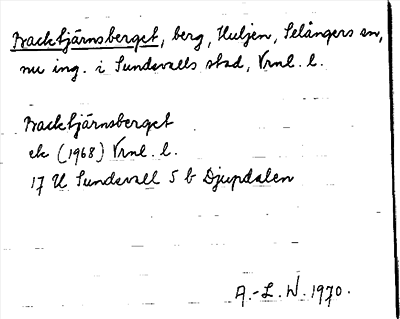 Backtjärnsberget, berg, Huljen, Selångers sn,
nu ing. i Sundsvalls stad, Vrnl. l.
Backtjärnsberget
ek (1968) Vrnl. l.
17 H Sundsvall 5 b Djupdalen
A.-L. W. 1970.